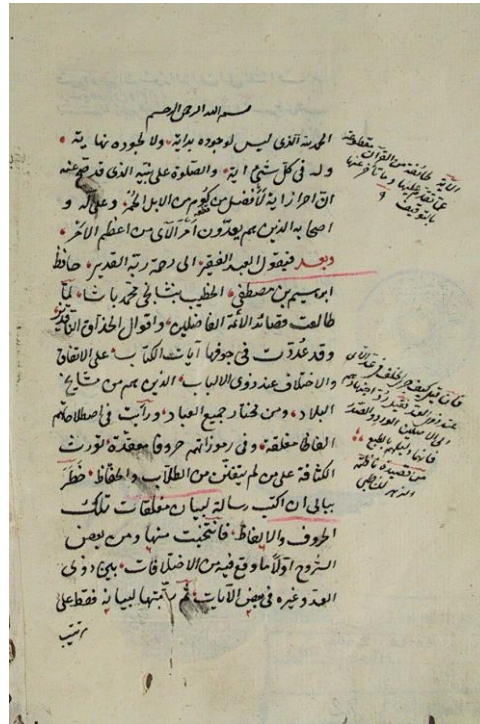 بسم الله الرحمن الرحيم
الحمد لله الذى ليس لوجوده بداية ولا لجوده نهاية
وله فى كل شئ اية والصلوة على نبيه الذى قد صح عنه
ان احراز اية لأفضل من كوم من الابل الحمر وعلى آله و
اصحابه الذين هم يعدون امر الآى من اعظم الامر
وبعد فيقول العبد الفقير الى رحمة ربه القدير حافظ
ابو سيم بن مصطفى الخطيب محمد باشا لما
طالعت قصائد الأئمة الفاضلين واقوال الحذاق
وقد عددت فى جوفها آيات الكتاب على الاتفاق
والاختلاف عند ذوى الالباب الذين هم من مشايخ
البلاد ومن مختار جميع العباد ورأيت فى اصطلاحاتهم
الفاظا مغلقة وفى رموزاتهم حروفا معقدة لتورث
الكثافة على من لم يتفطن من الطلاب والحفاظ خطر
ببالى ان اكتب رسالة لبيان مغلقات تلك
الحروف والالفاظ فانتخبت منها ومن بعض
الشروح اولا ما وقع فيه من الاختلافات بين ذوى
العد وغيره فى بعض الآيات ثم لبيانه فقط على
ترتيب
الاية طائفة من القران منقطعة
عما تقدم عليها وما تأخر عنها
بالتوقيف
من قصيدة ناظمة
الزهر للشاطبى